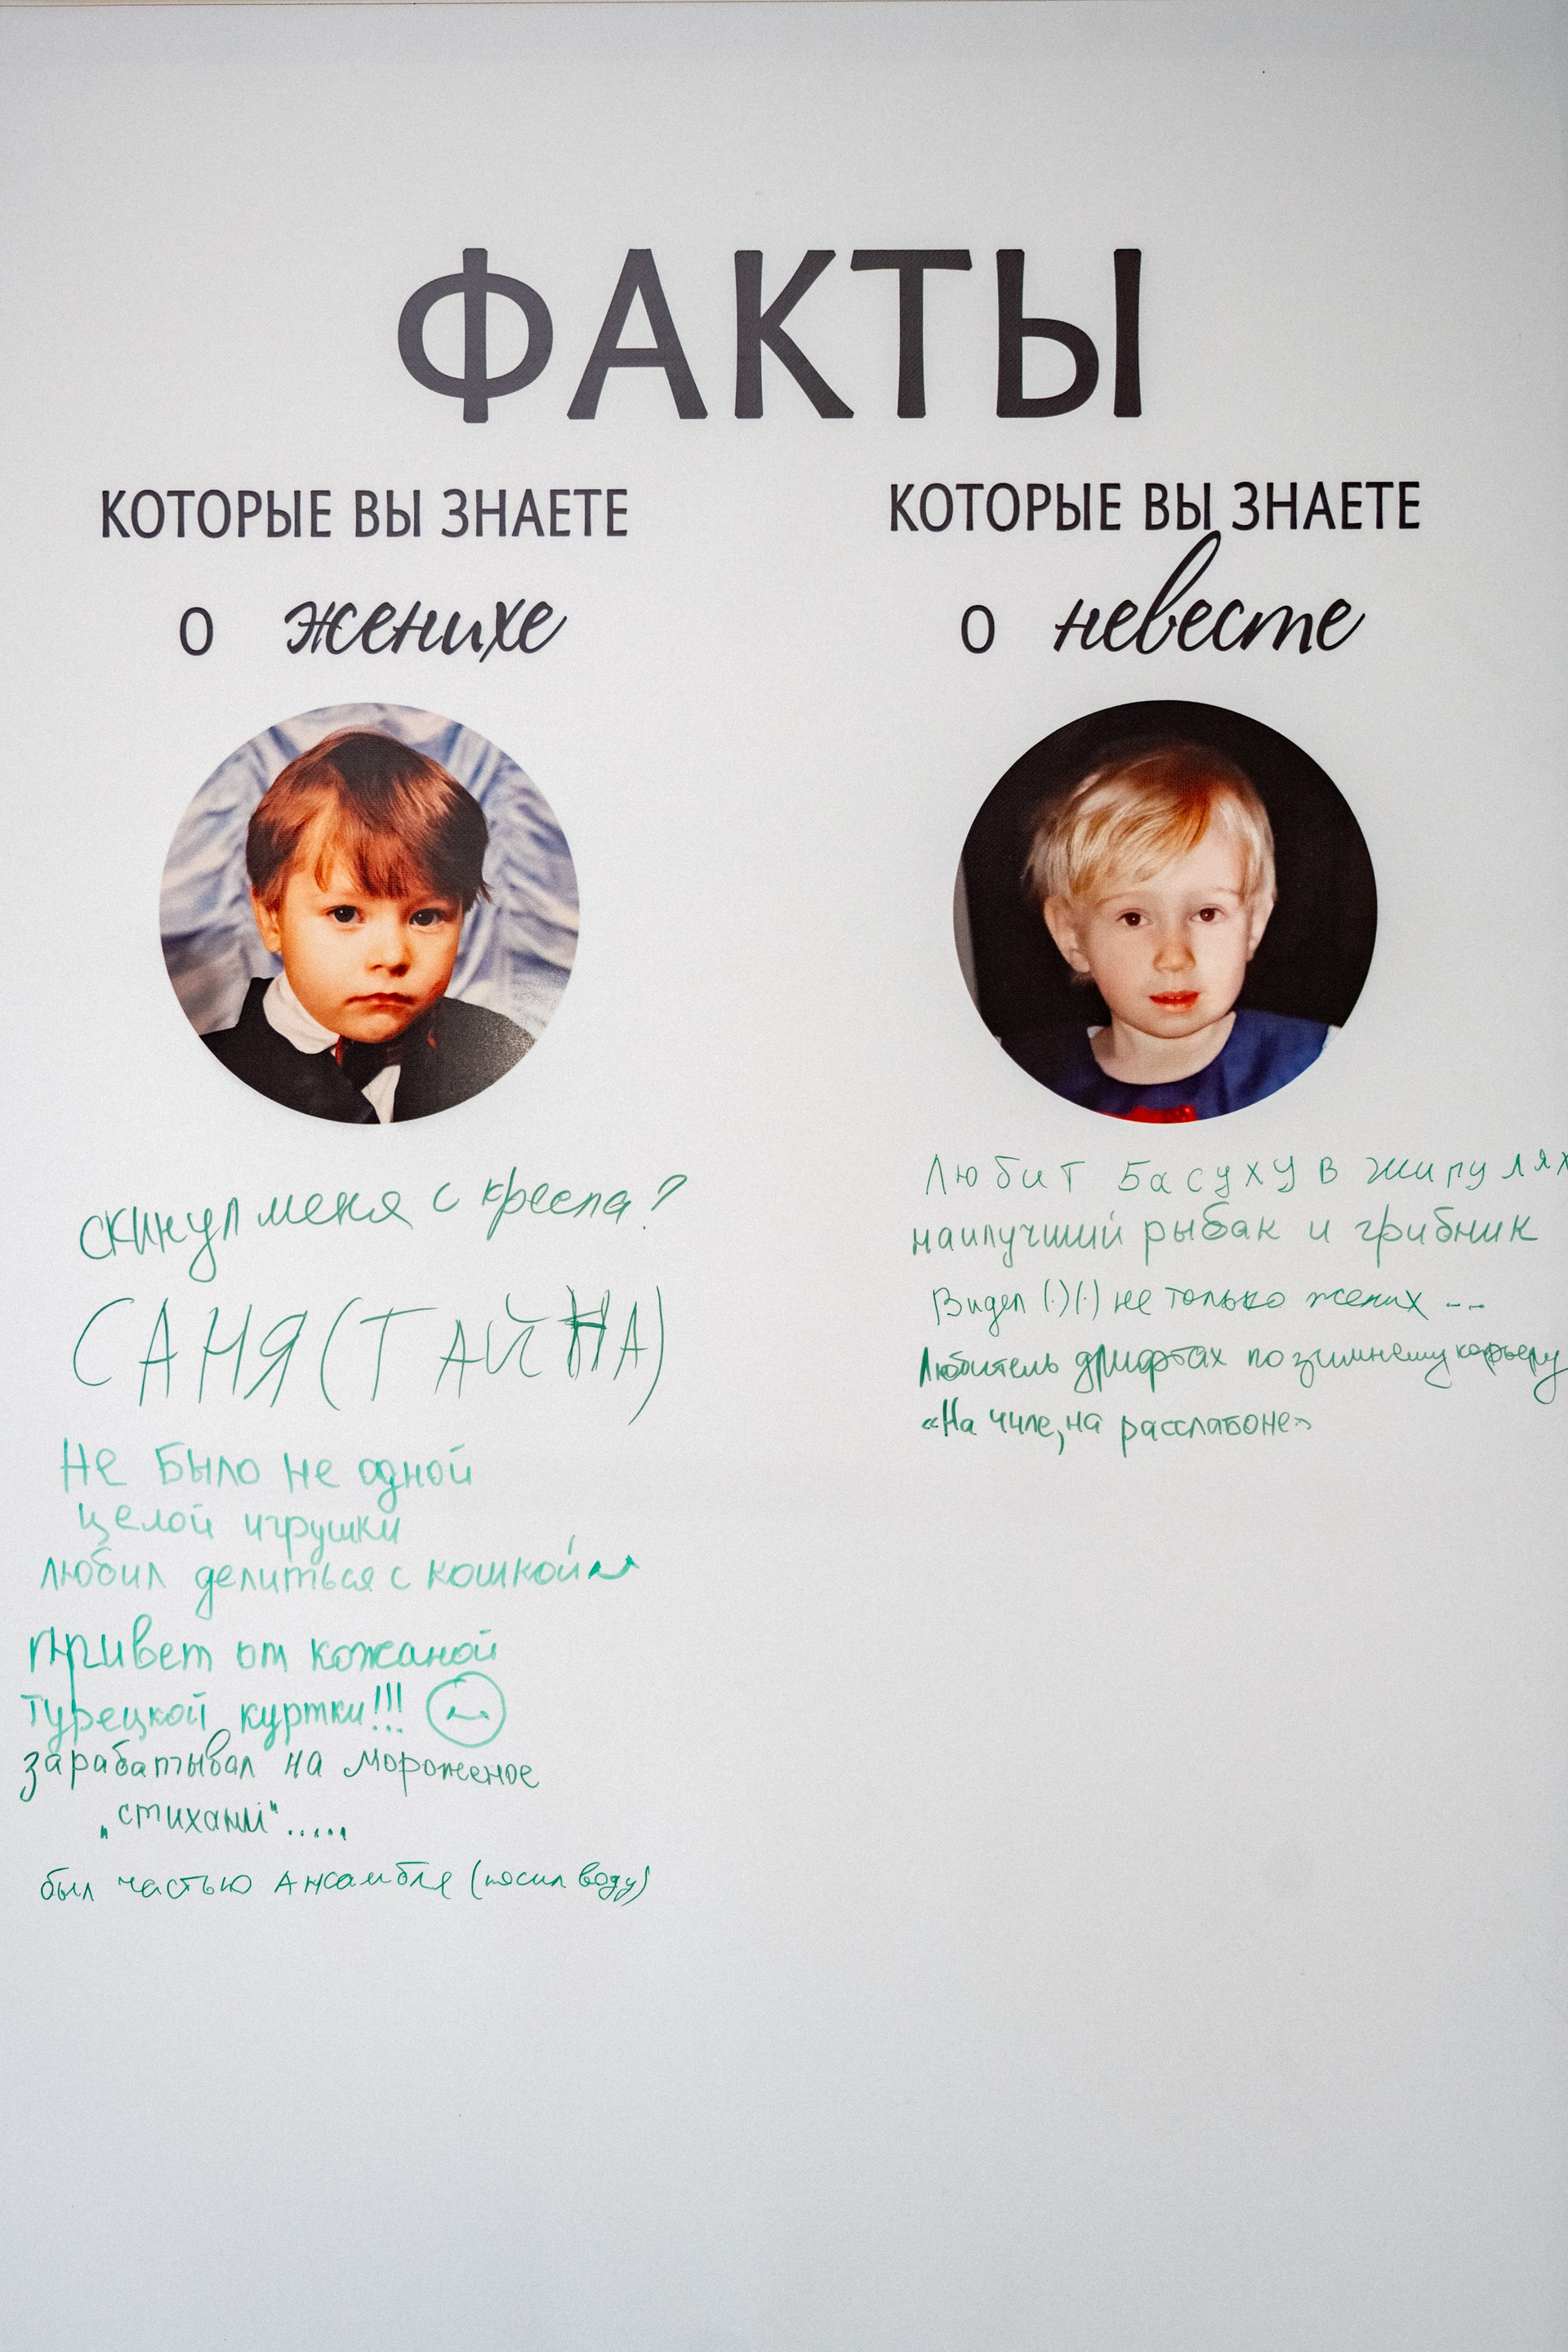 ФАКТЫ
КОТОРЫЕ ВЫ ЗНАЕТЕ
о женихе
скинул меня с кресла?
САНЯ (ТАЙНА)
Не было не одной
целой игрушки
любил делиться с кошкой
Привет от кожаной
турецкой куртки!!!
зарабатывал на мороженое
„стихами".....
был частью Ансамбля (носил воду)
КОТОРЫЕ ВЫ ЗНАЕТЕ
о невесте
Любит басуху в жигулях
наилучший рыбак и грибник
Видел (.)(.) не только жених ...
Любитель дрифтах по зимнему карьеру
«На чиле, на расслабоне»